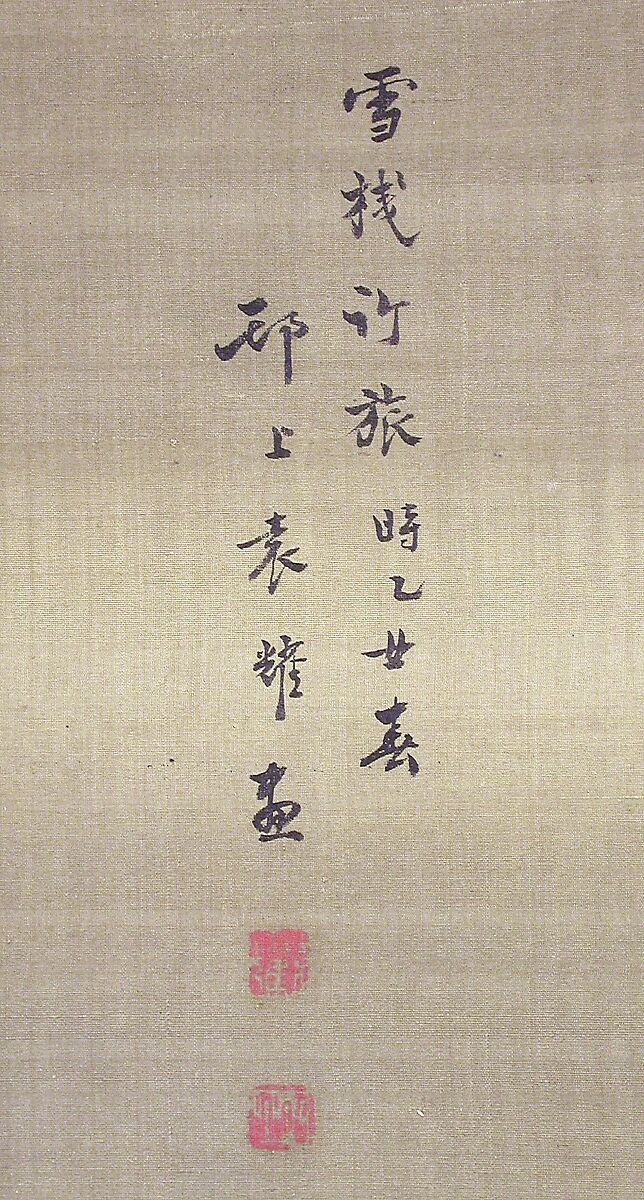 雪棧行旅時乙丑春
邗上袁耀畫